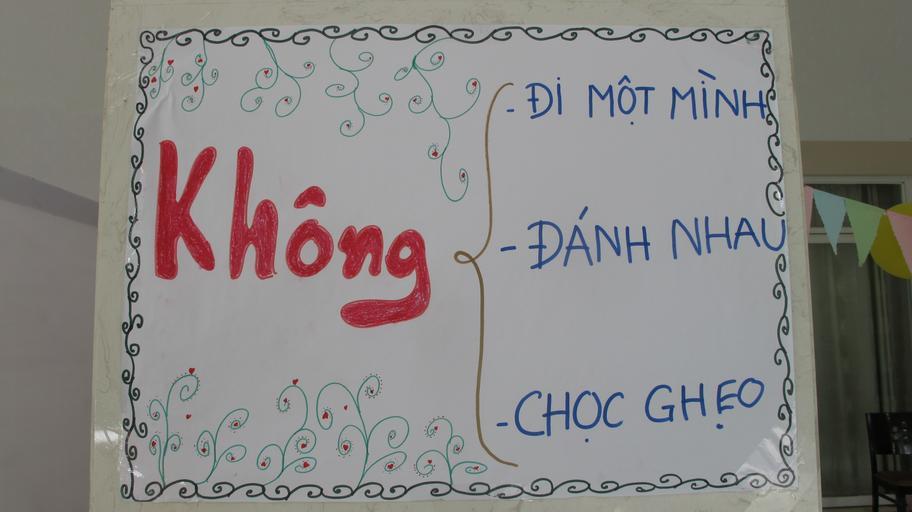 Không
- ĐI MỘT MÌNH
- ĐÁNH NHAU
- CHỌC GHẸO